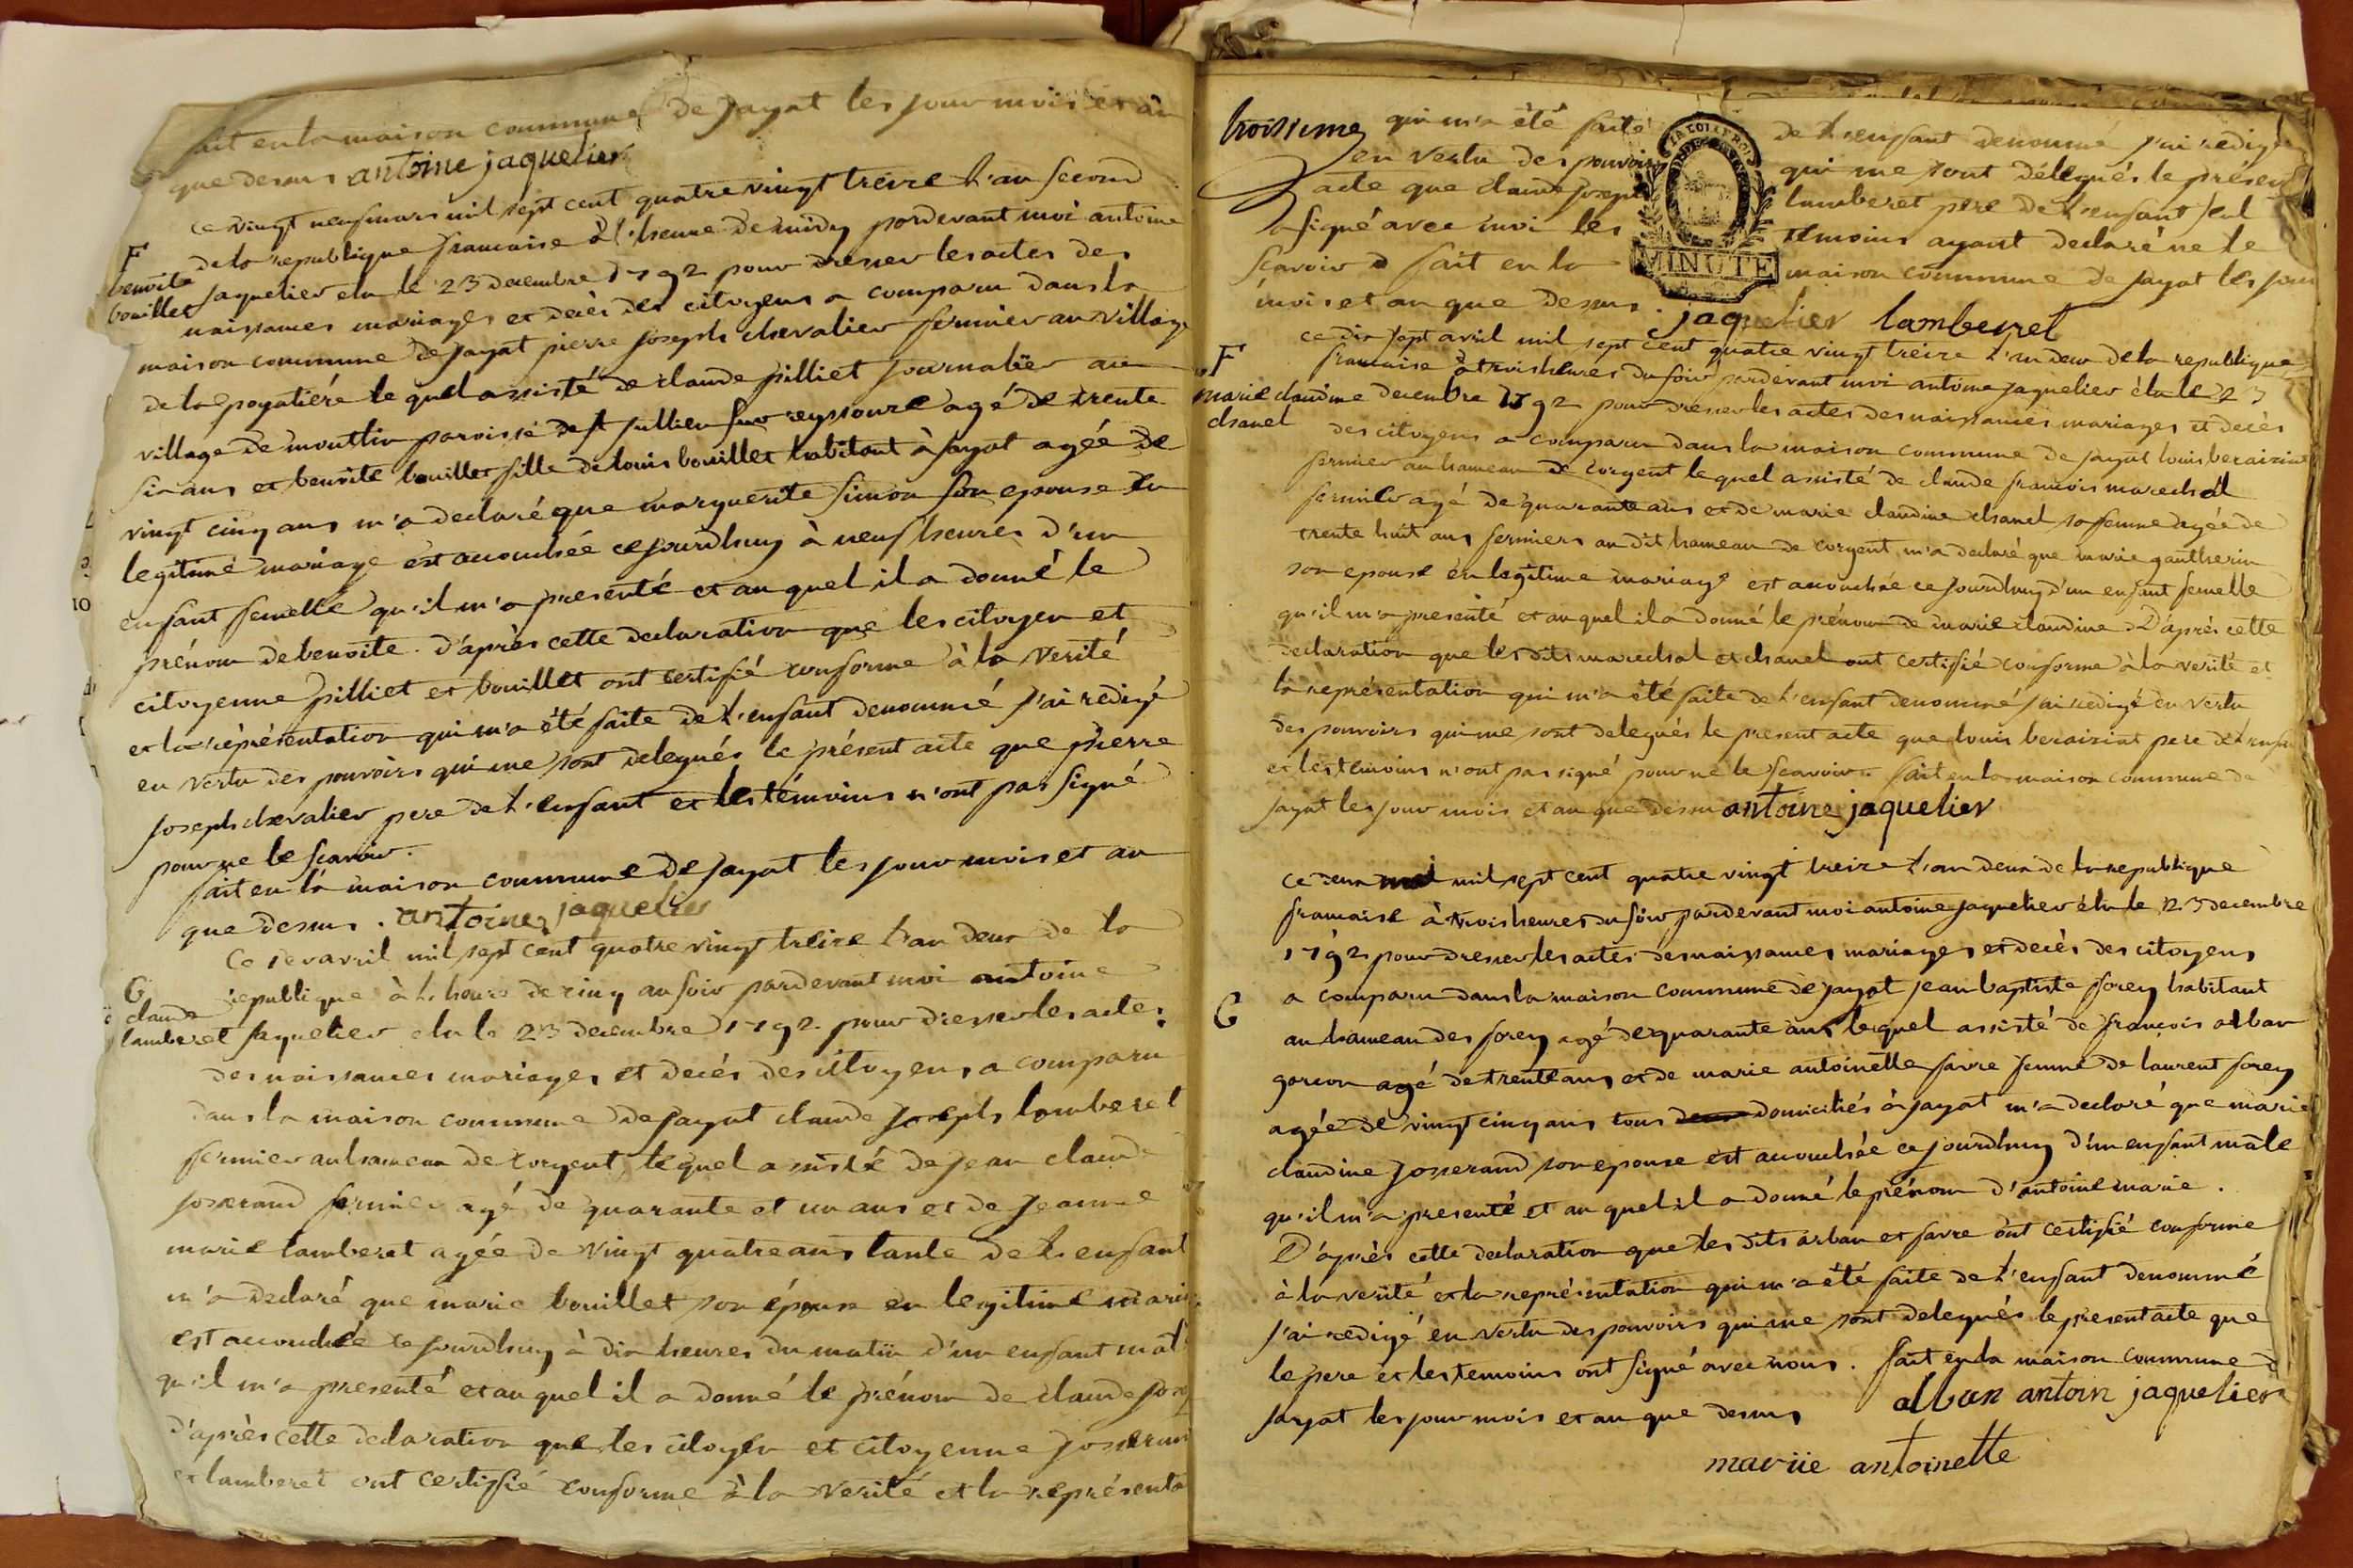 fait en la maison commune de jayat les jour mois et an
que dessus antoine jaquelier
ce vingt neuf mars mil sept cent quatre vingt treize l'an second
F
benoite
bouillet
de la republique francaise à l'heure de midy pardevant moi antoine
jaquelier elu le 23 decembre 1792 pour dresser les actes des
naissances mariages et decès des citoyens a comparu dans la
maison commune de jayat pierre joseph chevalier fermier au village
de la poyatiére le quel assisté de claude pilliet journalier au
village de moutlin paroisse de st jullien sur reyssouze agé de trente
six ans et benoite bouillet fille de louis bouillet habitant à jayat agée de
vingt cinq ans m'a declaré que marguerite simon son epouse en
legitime mariage est accouchée cejourdhuy à neuf heures d'un
enfant femelle qu'il m'a presenté et au quel il a donné le
prénom de benoite. d'après cette declaration que les citoyen et
citoyenne pilliet et bouillet ont certifié conforme à la verité
et la représentation qui m'a été faite de l'enfant denommé j'ai redigé
en vertu des pouvoirs qui me sont delegués le présent acte que pierre
joseph chevalier pere de l'enfant et les témoins n'ont pas signé
pour ne le scavoir.
fait en la maison commune de jayat les jour mois et an
que dessus. antoine jaquelier
Ce 1er avril mil sept cent quatre vingt treize l'an deux de la
G
claude
lamberet
republique à l'heure de cinq au soir pardevant moi antoine
jaquelier elu le 23 decembre 1792 pour dresser les actes
des naissances mariages et decés des citoyens a comparu
dans la maison commune de jayat claude joseph lamberet
fermier au hameau de corgent le quel assisté de jean claude
josserand fermier agé de quarante et un ans et de jeanne
marie lamberet agée de vingt quatre ans tante de l'enfant
m'a declaré que marie bouillet son épouse en legitime maria
est accouchée ce jourdhuy à dix heures du matin d'un enfant mal
qu'il m'a presenté et au quel il a donné le prénom de claude jos
d'après cette declaration que les citoyen et citoyenne josseran
et lamberet ont certifié conforme à la verité et la représenta
troisieme qui m'a été faite de l'enfant denommé j'ai redigé
LA LOI LE ROI
en vertu des pouvoirs qui me sont délegués le présent
acte que claude joseph lamberet pere de l'enfant seul
a signé avec moi les temoins ayant declaré ne le
MINUTE
scavoir fait en la maison commune de jayat les jour
mois et an que dessus. jaquelier lamberet
ce dix sept avril mil sept cent quatre vingt treize l'an deux de la republique
F
marie claudine
chanel
francaise à trois heures du soir pardevant moi antoine jaquelier élu le 23
decembre 1792 pour dresser les actes des naissances mariages et decès
des citoyens a comparu dans la maison commune de jayat louis beraizia
fermier au hameau de corgent le quel assisté de claude francois marechal
fermier agé de quarante ans et de marie claudine chanel sa femme agée de
trente huit ans fermiers au dit hameau de corgent m'a declaré que marie gautherin
son epouse en legitime mariage est accouchée ce jourdhuy d'un enfant femelle
qu'il m'a presenté et au quel il a donné le prénom de marie claudine. D'après cette
declaration que les dits marechal et chanel ont certifié conforme à la verité et
la représentation qui m'a été faite de l'enfant denommé j'ai redigé en vertu
des pouvoirs qui me sont delegués le present acte que louis beraiziat pere de l'enfa
et les temoins n'ont pas signé pour ne le scavoir. fait en la maison commune de
jayat les jour mois et an que dessus antoine jaquelier
ce deux mai mil sept cent quatre vingt treize l'an deux de la republique
francaise à trois heures du soir pardevant moi antoine jaquelier élu le 23 decembre
1792 pour dresser les actes des naissances mariages et decès des citoyens
G
a comparu dans la maison commune de jayat jean baptiste forey habitant
au hameau des forey agé de quarante ans lequel assisté de francois alban
garcon agé de trente ans et de marie antoinette favre femme de laurent forey
agée de vingt cinq ans tous domiciliés à jayat m'a declaré que marie
claudine josserand son epouse est accouchée ce jourdhuy d'un enfant mâle
qu'il m'a presenté et au quel il a donné le prénom d'antoine marie.
D'après cette declaration que les dits arban et favre ont certifié conforme
à la verité et la représentation qui m'a été faite de l'enfant denommé
j'ai redigé en vertu des pouvoirs qui me sont delegués le present acte que
le pere et les temoins ont signé avec nous. fait en la maison commune d
jayat les jour mois et an que dessus alban antoin jaquelier
mariie antoinette